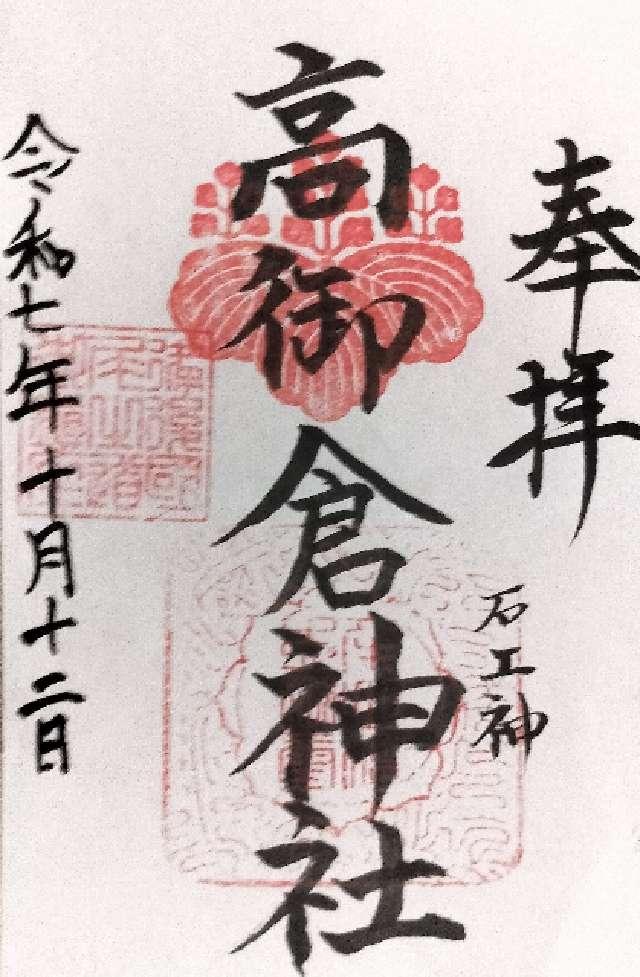 奉拝
石工神
高御倉神社
令和七年十月十二日